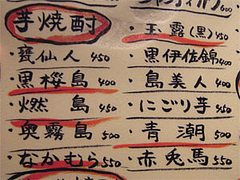 芋焼酎
甕仙人 450
黒桜島 400
・燃島 450
・奥霧島 500
・なかむら 550
玉露(黒) 450
黒伊佐錦 400
・島美人 400
・にごり芋 450
・青潮 500
・赤兎馬 550